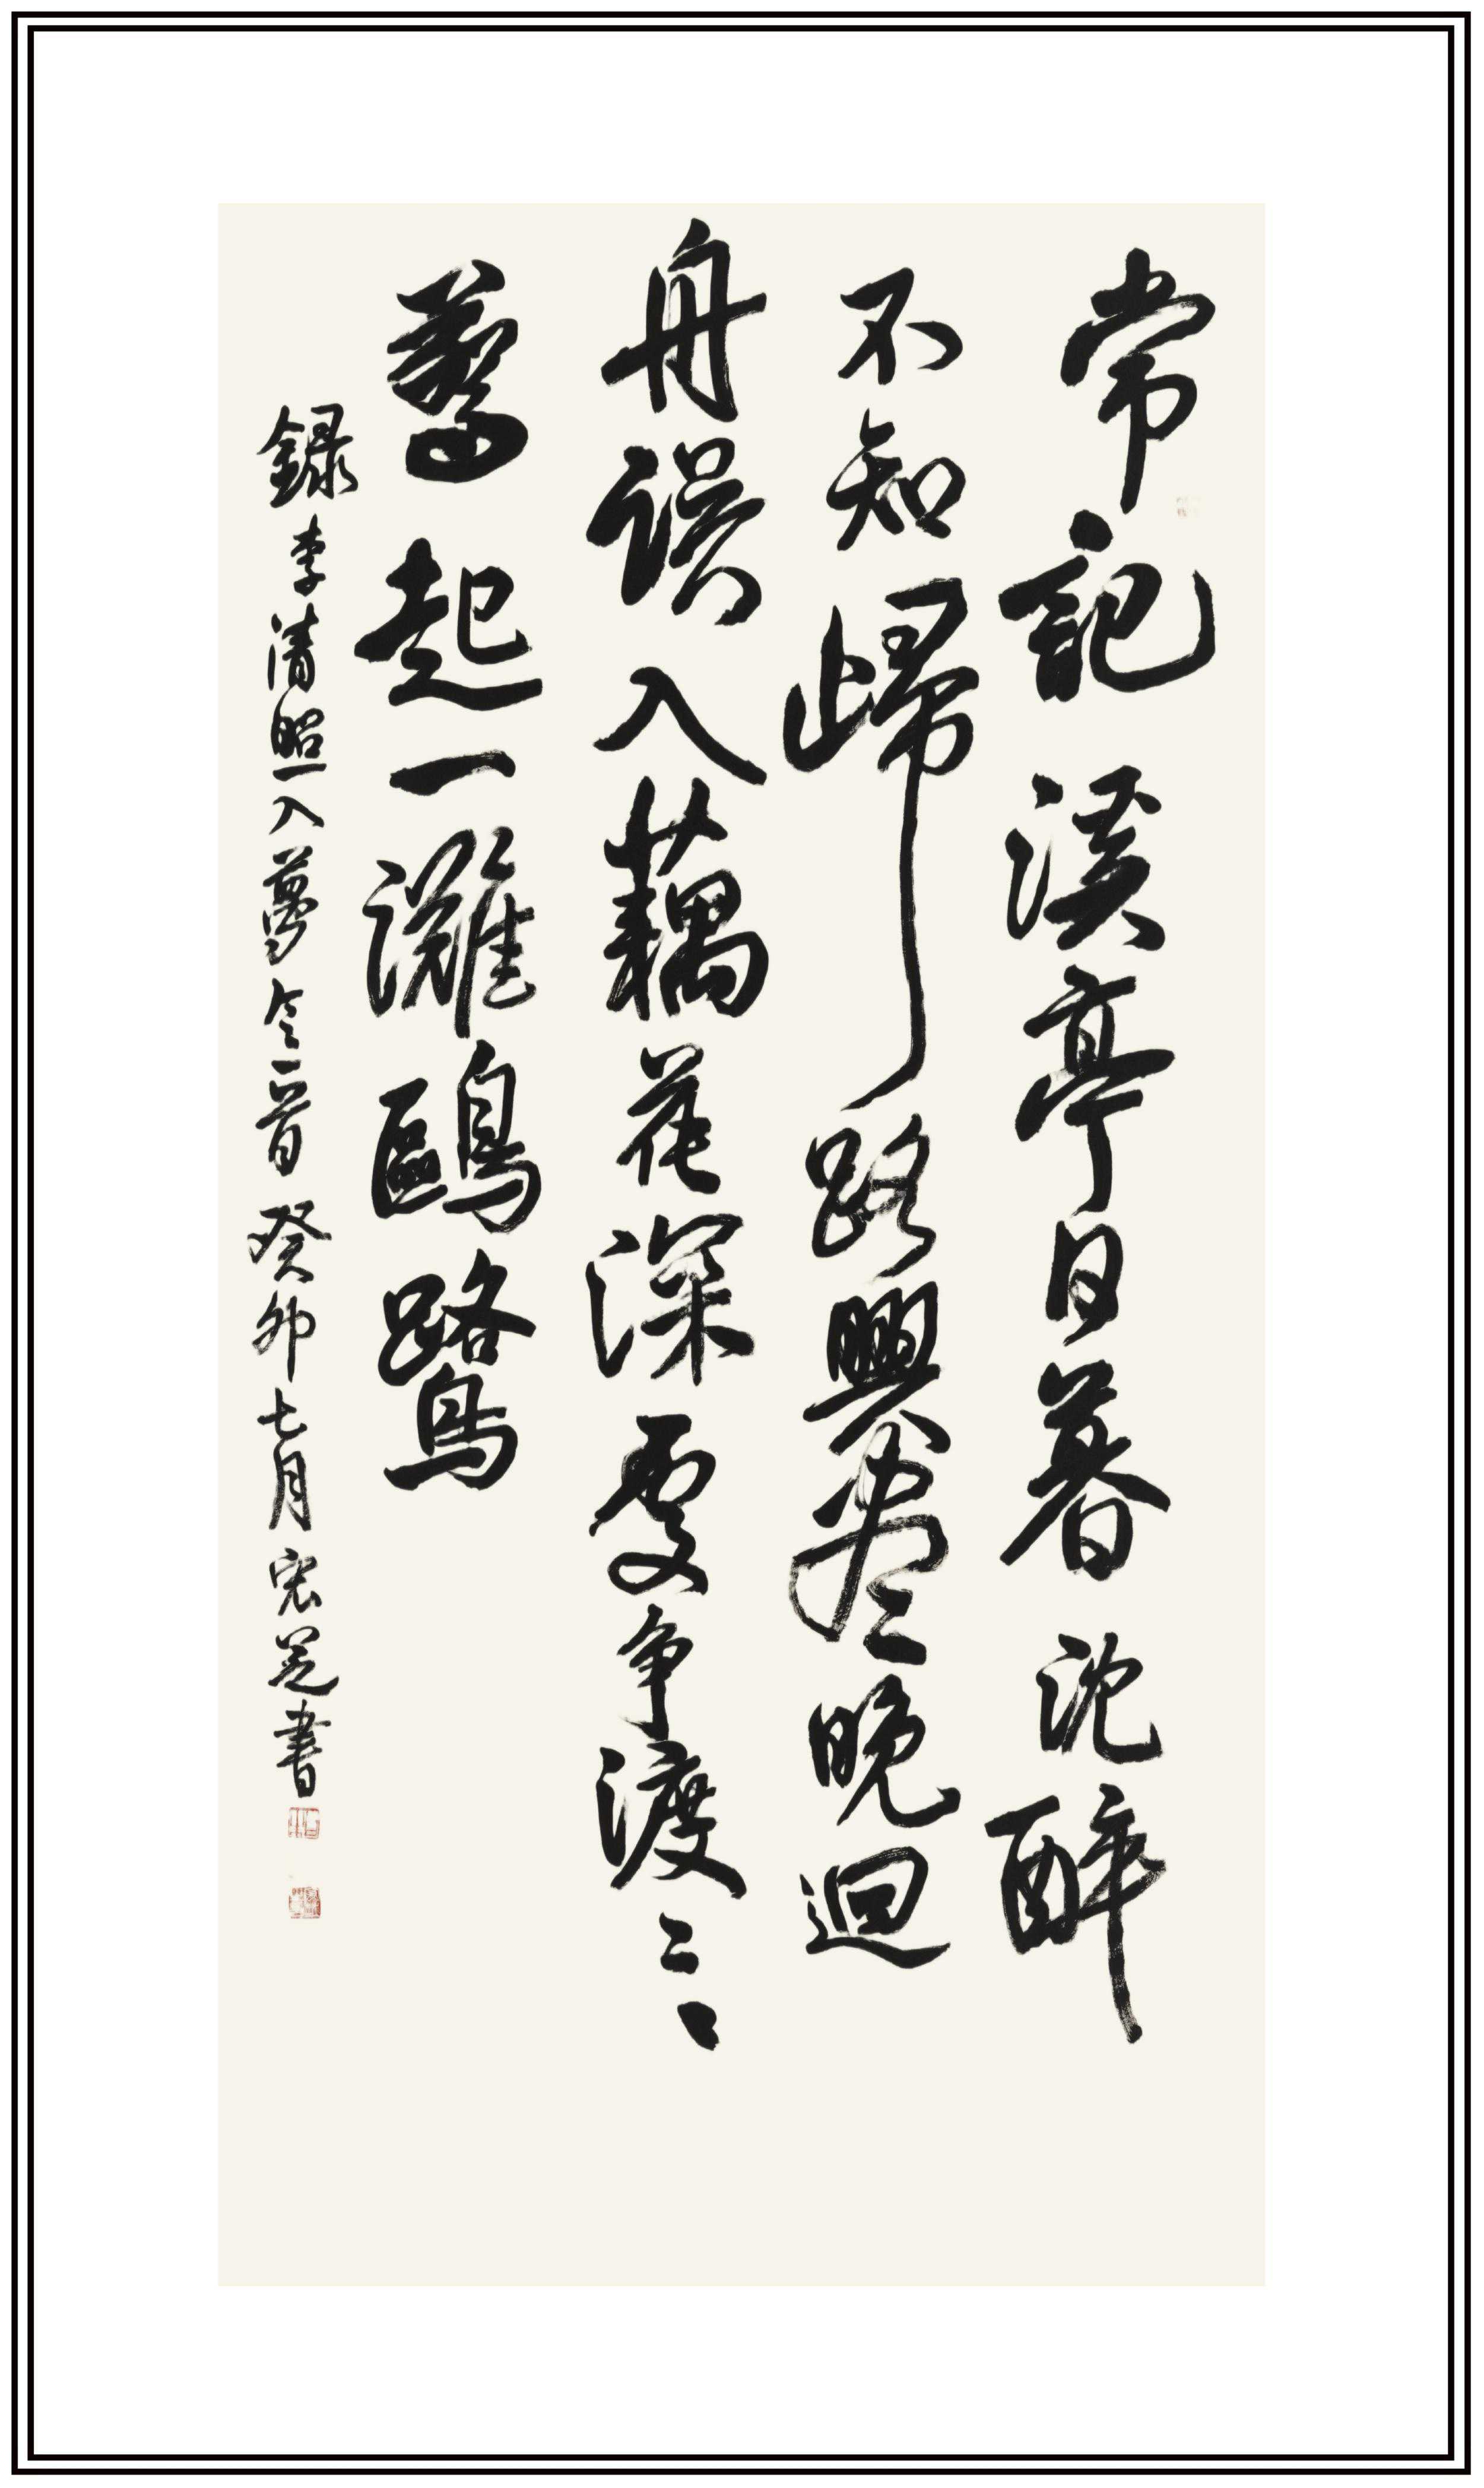 常記溪亭日暮沈醉
不知歸路興盡晚迴
舟误入藕花深處争渡二、
驚起一灘鷗鷺
録李清照入夢令一首癸卯七月宏芝書